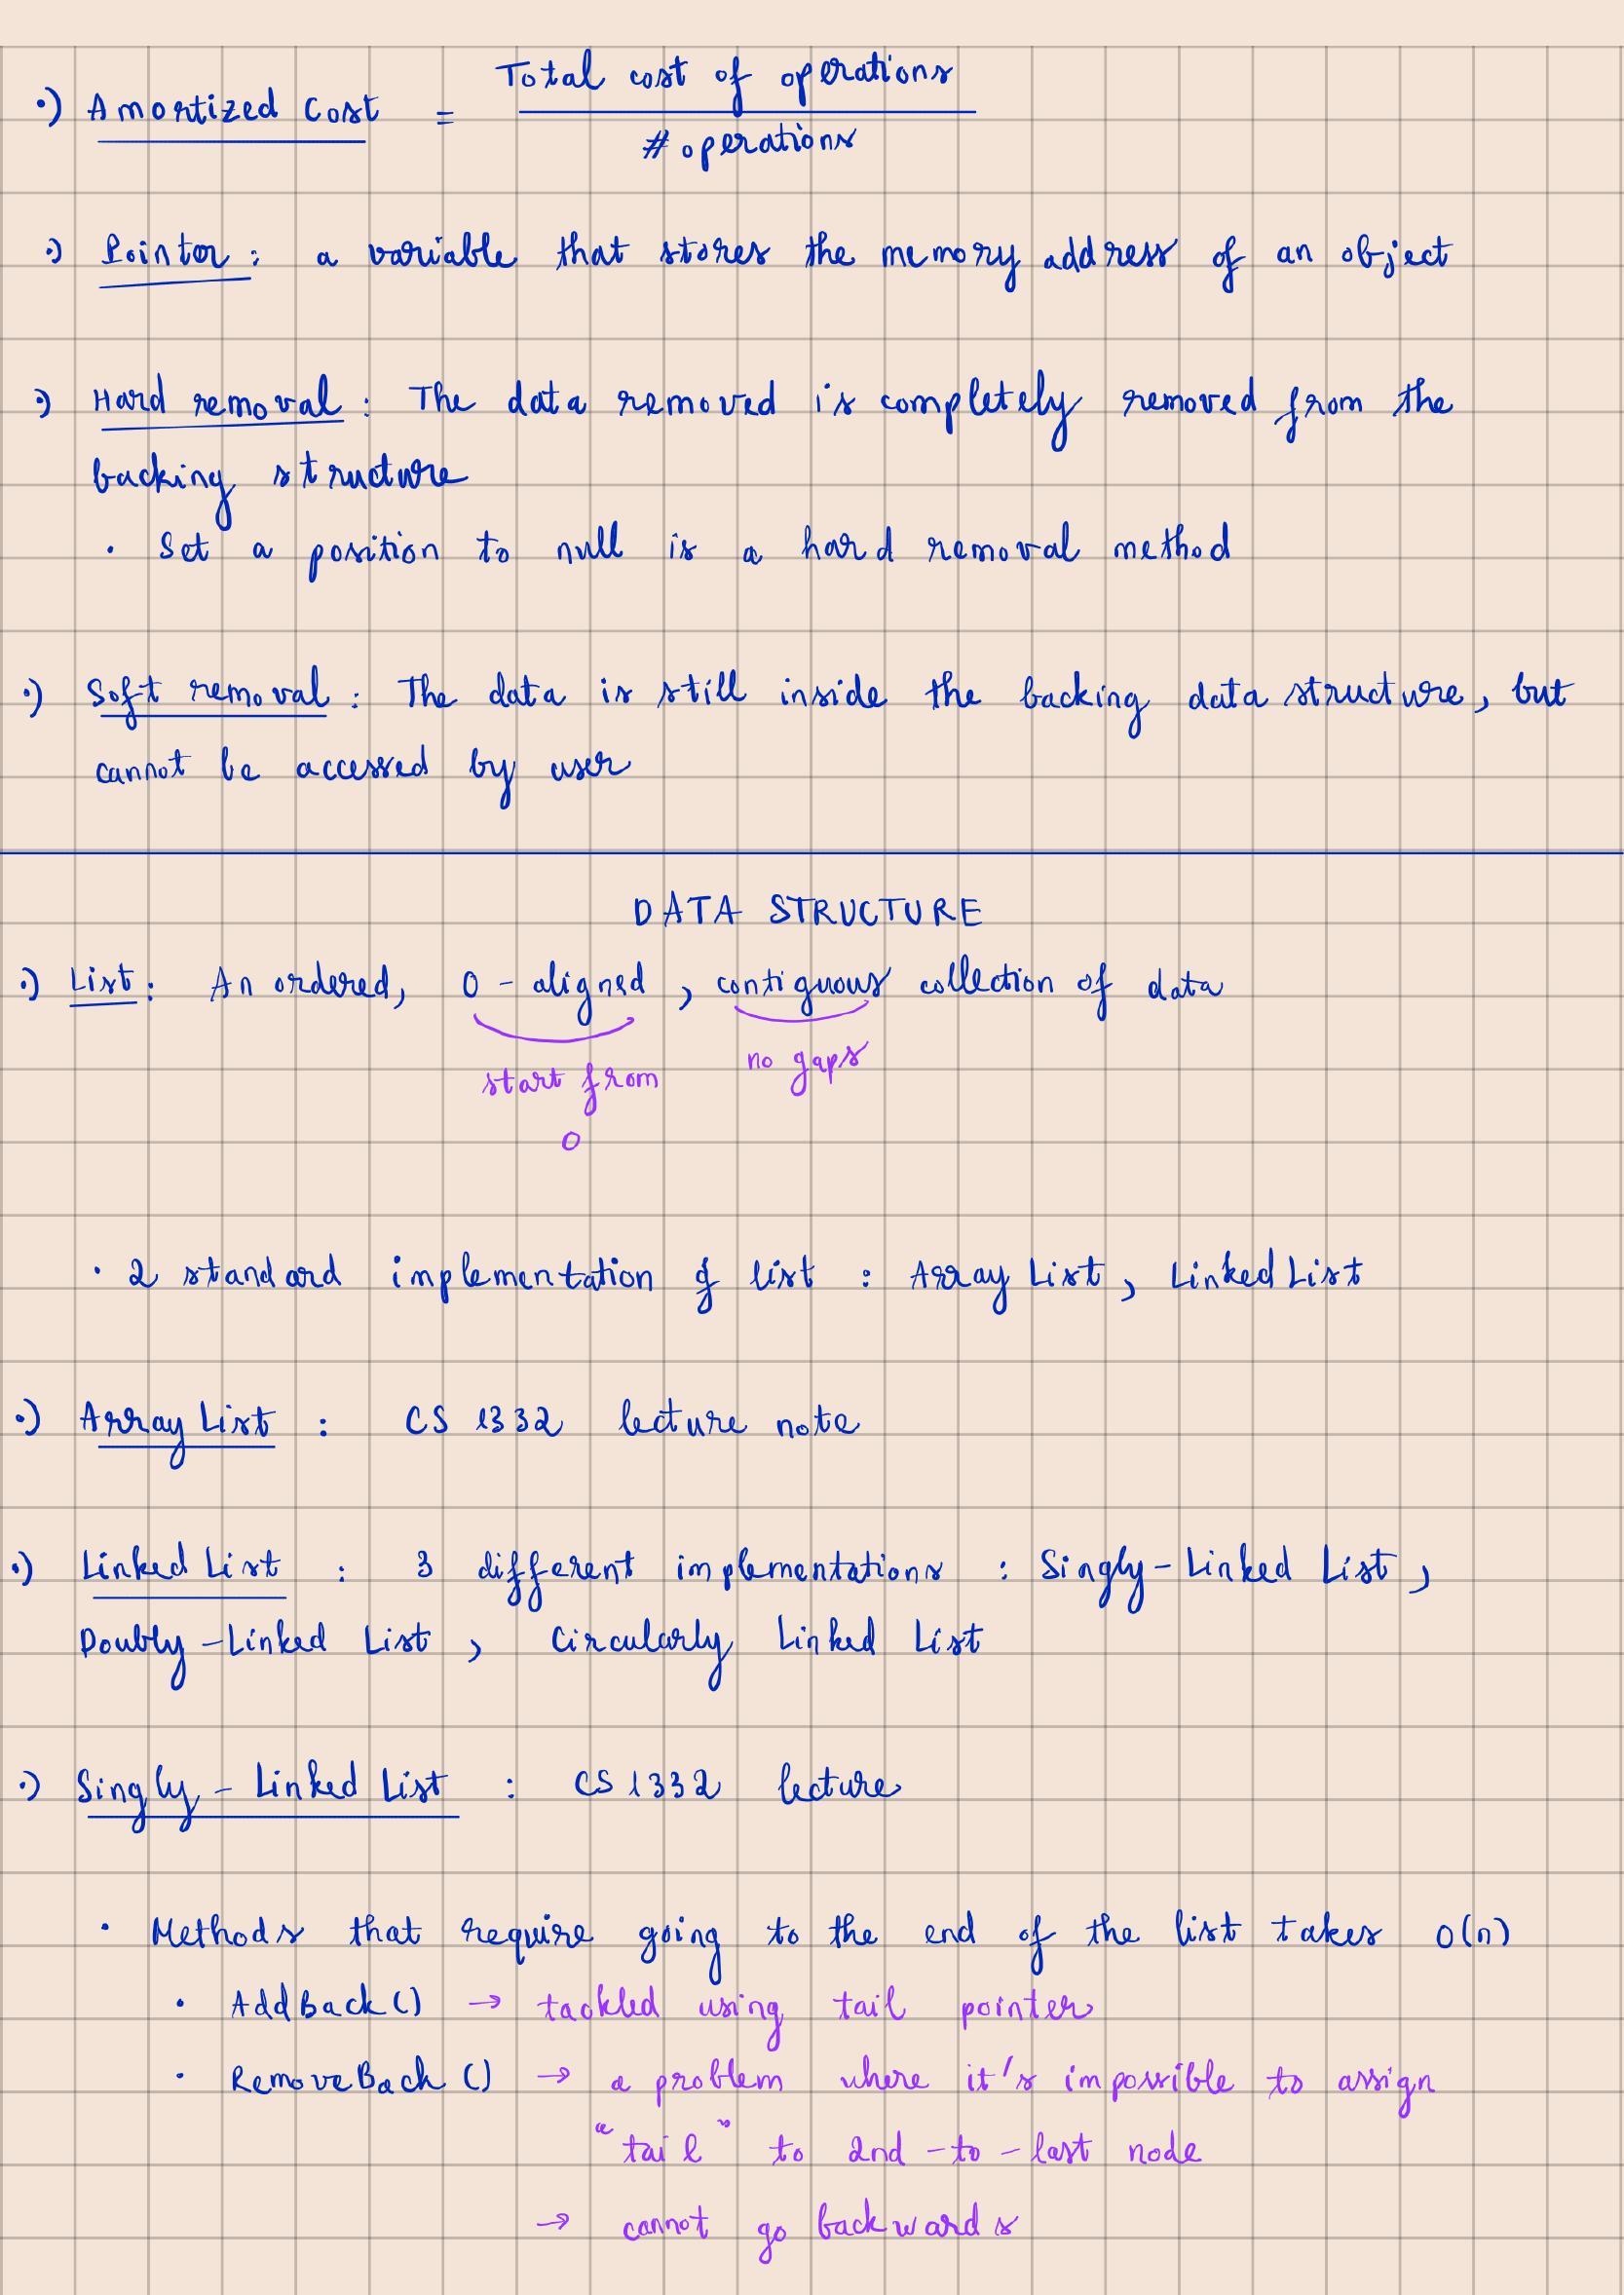 ·) Amortized Cost = Total cost of operations
# operations
·) Pointer: a variable that stores the memory address of an object
·) Hard removal: The data removed is completely removed from the
backing structure
· Set a position to null is a hard removal method
·) Soft removal: The data is still inside the backing data structure, but
cannot be accessed by user
DATA STRUCTURE
·) List: An ordered, 0-aligned, contiguous collection of data
start from no gaps
0
· 2 standard implementation of list: ArrayList, LinkedList
·) ArrayList: CS 1332 lecture note
·) LinkedList: 3 different implementations: Singly-Linked List,
Doubly-Linked List, Circularly Linked List
·) Singly-Linked List: CS 1332 lecture
· Methods that require going to the end of the list takes O(n)
· AddBack() → tackled using tail pointer
· RemoveBack() → a problem where it's impossible to assign
"tail" to 2nd-to-last node
→ cannot go backwards